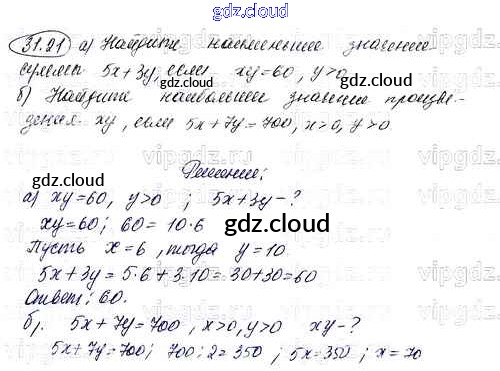 gdz.cloud
31.21 а) Найдите наименьшее значение
суммы 5x+3y, если xy=60, y>0
gdz.cloud
б) Найдите наибольшее значение произве-
дения xy, если 5x+7y=700, x>0, y>0
Решение:
gdz.cloud
а) xy=60, y>0 ; 5x+3y-?
xy=60; 60=10·6
gdz.cloud
Пусть x=6, тогда y=10
5x+3y=5·6+3·10=30+30=60
Ответ: 60.
gdz.cloud
б). 5x+7y=700, x>0, y>0 xy-?
5x+7y=700; 700:2=350 ; 5x=350 ; x=70